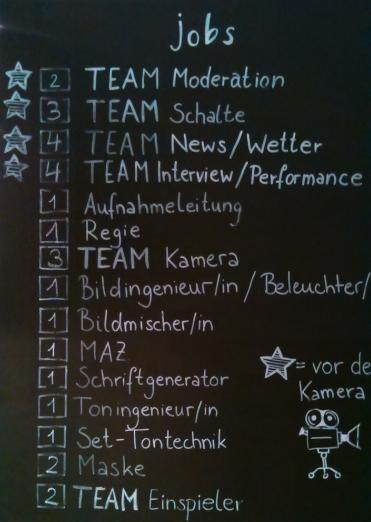 jobs
2 TEAM Moderation
3 TEAM Schalte
4 TEAM News/Wetter
4 TEAM Interview/Performance
1 Aufnahmeleitung
1 Regie
3 TEAM Kamera
1 Bildingenieur/in / Beleuchter/
1 Bildmischer/in
1 MAZ
1 Schriftgenerator
1 Toningenieur/in
1 Set-Tontechnik
2 Maske
2 TEAM Einspieler
= vor de
Kamera